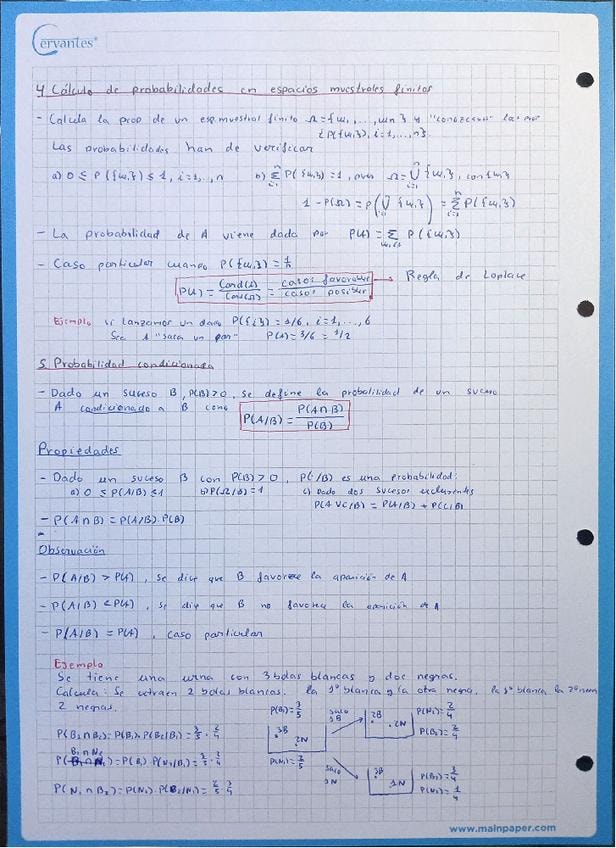 Cervantes
4 Cálculo de probabilidades en espacios muestrales finitos
- Calcula la prop de un esp. muestral finito Ω={ω₁,...,ωn} y "conozcamos" las prob
{P({ωᵢ}), i=1,...,n}
Las probabilidades han de verificar
a) 0 ≤ P({ωᵢ}) ≤ 1, i=1,..,n b) Σ P({ωᵢ})=1, pues Ω=∪{ωᵢ}, con {ωᵢ}
1 = P(Ω) = P(∪{ωᵢ}) = Σ P({ωᵢ})
- La probabilidad de A viene dada por P(A)=Σ P({ωᵢ})
- Caso particular cuando P({ωᵢ})=1/n
P(A) = Card(A)/Card(Ω) = casos favorables/casos posibles → Regla de Laplace
Ejemplo si lanzamos un dado P({i})=1/6, i=1,...,6
Sea A "saca un par" P(A)=3/6=1/2
5 Probabilidad condicionada
- Dado un suceso B, P(B)>0, se define la probabilidad de un suceso
A condicionado a B como P(A/B)=P(A∩B)/P(B)
Propiedades
- Dado un suceso B con P(B)>0, P(·/B) es una probabilidad:
a) 0 ≤ P(A/B) ≤ 1 b) P(Ω/B)=1 c) Dado dos sucesos excluyentes
P(A∪C/B) = P(A/B) + P(C/B)
- P(A∩B)=P(A/B)·P(B)
Observación
- P(A/B) > P(A), se dice que B favorece la aparición de A
- P(A/B) < P(A), se dice que B no favorece la aparición de A
- P(A/B) = P(A), caso particular
Ejemplo
Se tiene una urna con 3 bolas blancas y dos negras.
Calcula: Se extraen 2 bolas blancas. la 1º blanca y la otra negra. la 1º blanca la 2º negra
2 negras.
P(B₁)=3/5 saco 1B 2B 2N P(N₂)=2/4
P(B₂)=2/4
P(B₁∩B₂)=P(B₁)·P(B₂/B₁)=3/5·2/4 3B 2N
B₁∩N₂
P( )=P(B₁)·P(N₂/B₁)=3/5·2/4 P(N₁)=2/5
saco 1N 3B 1N P(B₂)=3/4
P(N₂)=1/4
P(N₁∩B₂)=P(N₁)·P(B₂/N₁)=2/5·3/4
www.mainpaper.com